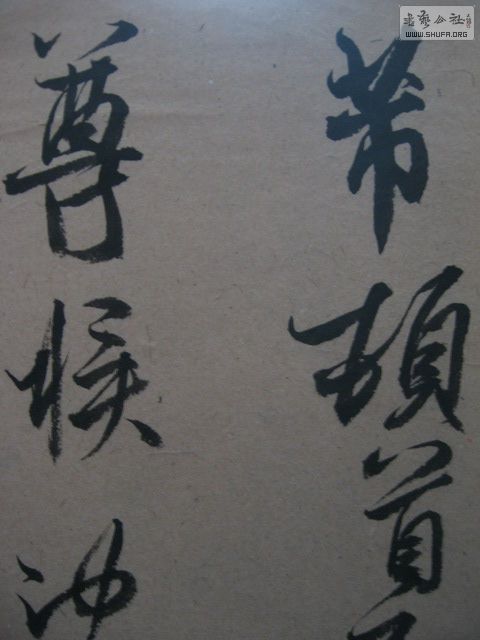 書藝公社
WWW.SHUFA.ORG
芾頓首
尊候冲